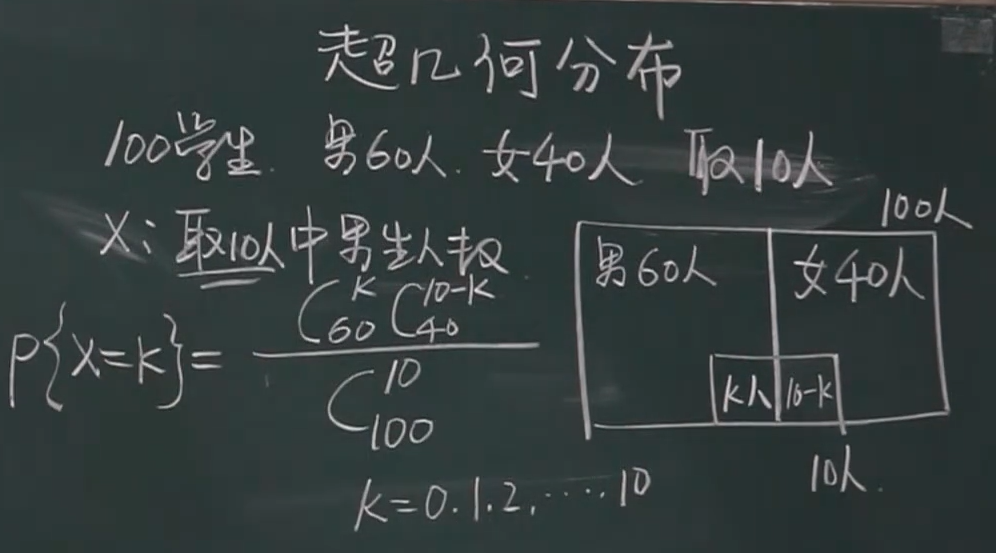 超几何分布
100学生. 男60人. 女40人 取10人
X: 取10人中男生人数
P{X=K}= C₆₀ᴷ C₄₀¹⁰⁻ᴷ / C₁₀₀¹⁰
K=0.1.2.…..10
100人
男60人 女40人
K人 10-K
10人.